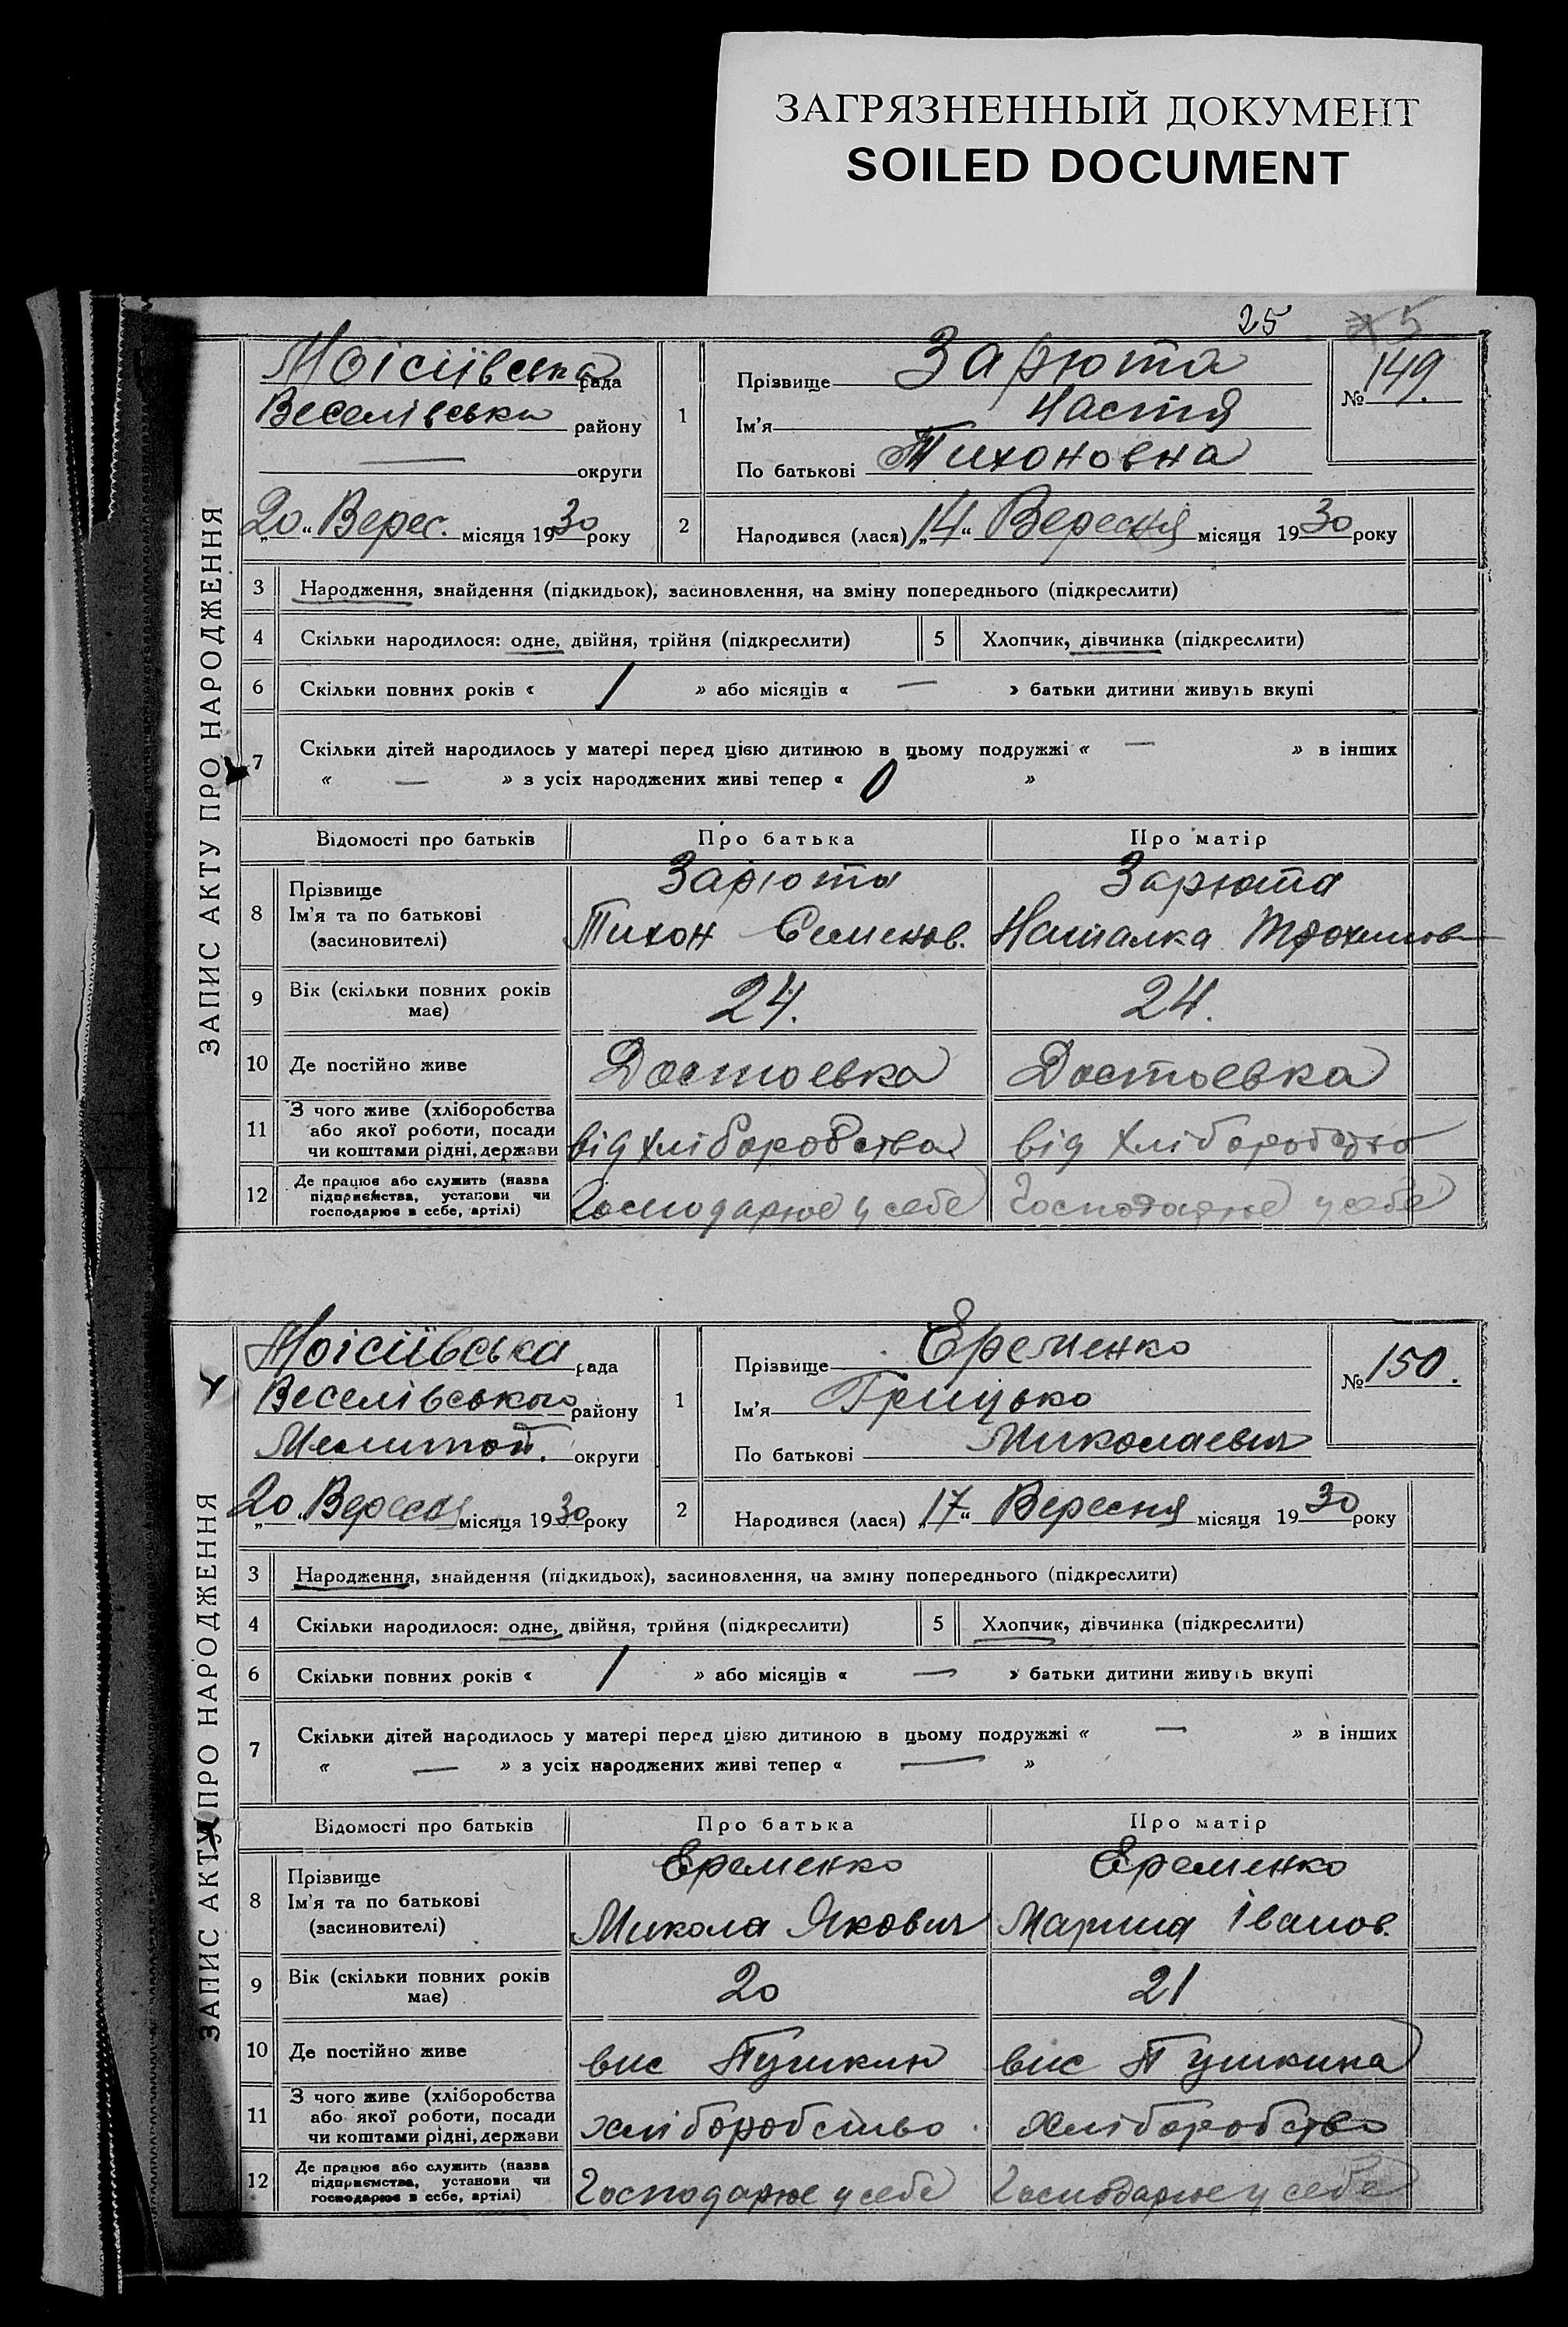 ЗАГРЯЗНЕННЫЙ ДОКУМЕНТ
SOILED DOCUMENT
25
5
ЗАПИС АКТУ ПРО НАРОДЖЕННЯ
Моісіївська рада
Веселівська району
— округи
„20“ Верес. місяця 1930 року
1
Прізвище Зарюта
Ім'я Настя
По батькові Тихоновна
№ 149.
2 Народився (лася) „14“ Вересня місяця 1930 року
3 Народження, знайдення (підкидьок), засиновлення, на зміну попереднього (підкреслити)
4 Скільки народилося: одне, двійня, трійня (підкреслити) 5 Хлопчик, дівчинка (підкреслити)
6 Скільки повних років « 1 » або місяців « — » батьки дитини живуть вкупі
7 Скільки дітей народилось у матері перед цією дитиною в цьому подружжі « — » в інших
« — » з усіх народжених живі тепер « 0 »
Відомості про батьків Про батька Про матір
8 Прізвище Зарюта Зарюта
Ім'я та по батькові Тихон Семенов. Наталка
(засиновителі)
9 Вік (скільки повних років має) 24. 24.
10 Де постійно живе Достоевка Достоевка
11 З чого живе (хліборобства
або якої роботи, посади
чи коштами рідні, держави від хліборобства від хліборобства
12 Де працює або служить (назва
підприємства, установи чи
господарює в себе, артілі) Господарює у себе Господарює у себе
ЗАПИС АКТУ ПРО НАРОДЖЕННЯ
Моісіївська рада
Веселівського району
Мелітоп. округи
„20“ Вересня місяця 1930 року
1
Прізвище Єременко
Ім'я Грицько
По батькові Миколаевич
№ 150.
2 Народився (лася) „17“ Вересня місяця 1930 року
3 Народження, знайдення (підкидьок), засиновлення, на зміну попереднього (підкреслити)
4 Скільки народилося: одне, двійня, трійня (підкреслити) 5 Хлопчик, дівчинка (підкреслити)
6 Скільки повних років « 1 » або місяців « — » батьки дитини живуть вкупі
7 Скільки дітей народилось у матері перед цією дитиною в цьому подружжі « — » в інших
« — » з усіх народжених живі тепер « — »
Відомості про батьків Про батька Про матір
8 Прізвище Єременко Єременко
Ім'я та по батькові Микола Якович Марина Іванов.
(засиновителі)
9 Вік (скільки повних років має) 20 21
10 Де постійно живе вис Пушкин вис Пушкина
11 З чого живе (хліборобства
або якої роботи, посади
чи коштами рідні, держави хліборобство хліборобство
12 Де працює або служить (назва
підприємства, установи чи
господарює в себе, артілі) Господарює у себе Господарює у себе